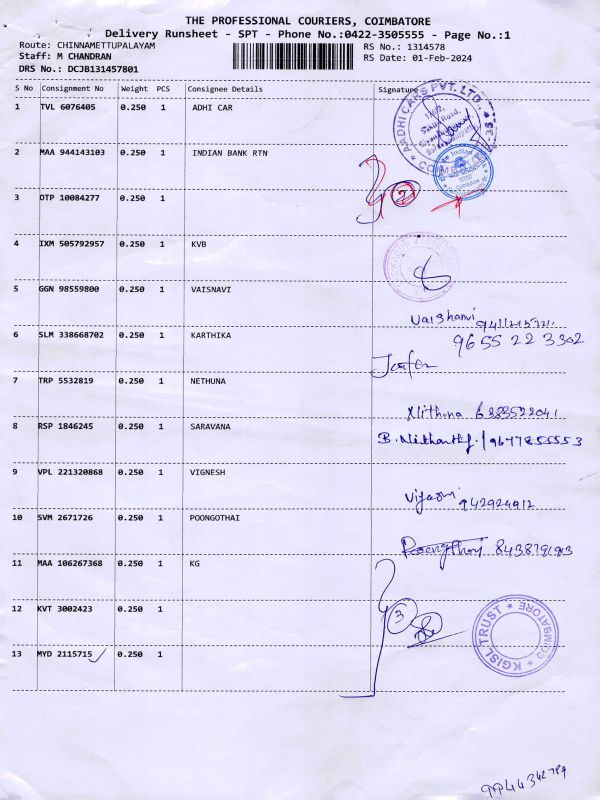 THE PROFESSIONAL COURIERS, COIMBATORE
Delivery Runsheet - SPT - Phone No.:0422-3505555 - Page No.:1
Route: CHINNAMETTUPALAYAM
RS No.: 1314578
Staff: M CHANDRAN
RS Date: 01-Feb-2024
DRS No.: DCJB131457801
S No Consignment No Weight PCS Consignee Details Signature
1 TVL 6076405 0.250 1 ADHI CAR
AADHI CARS PVT. LTD.
2 MAA 944143103 0.250 1 INDIAN BANK RTN
Indian Bank
2
3 OTP 10084277 0.250 1
4 IXM 505792957 0.250 1 KVB
5 GGN 98559800 0.250 1 VAISNAVI
Vaishnavi
6 SLM 338668702 0.250 1 KARTHIKA
9655 22 3302
7 TRP 5532819 0.250 1 NETHUNA
Nithuna
8 RSP 1846245 0.250 1 SARAVANA
9677855553
9 VPL 221320868 0.250 1 VIGNESH
10 SVM 2671726 0.250 1 POONGOTHAI
11 MAA 106267368 0.250 1 KG
12 KVT 3002423 0.250 1
3
KGISL TRUST * COIMBATORE *
13 MYD 2115715 0.250 1